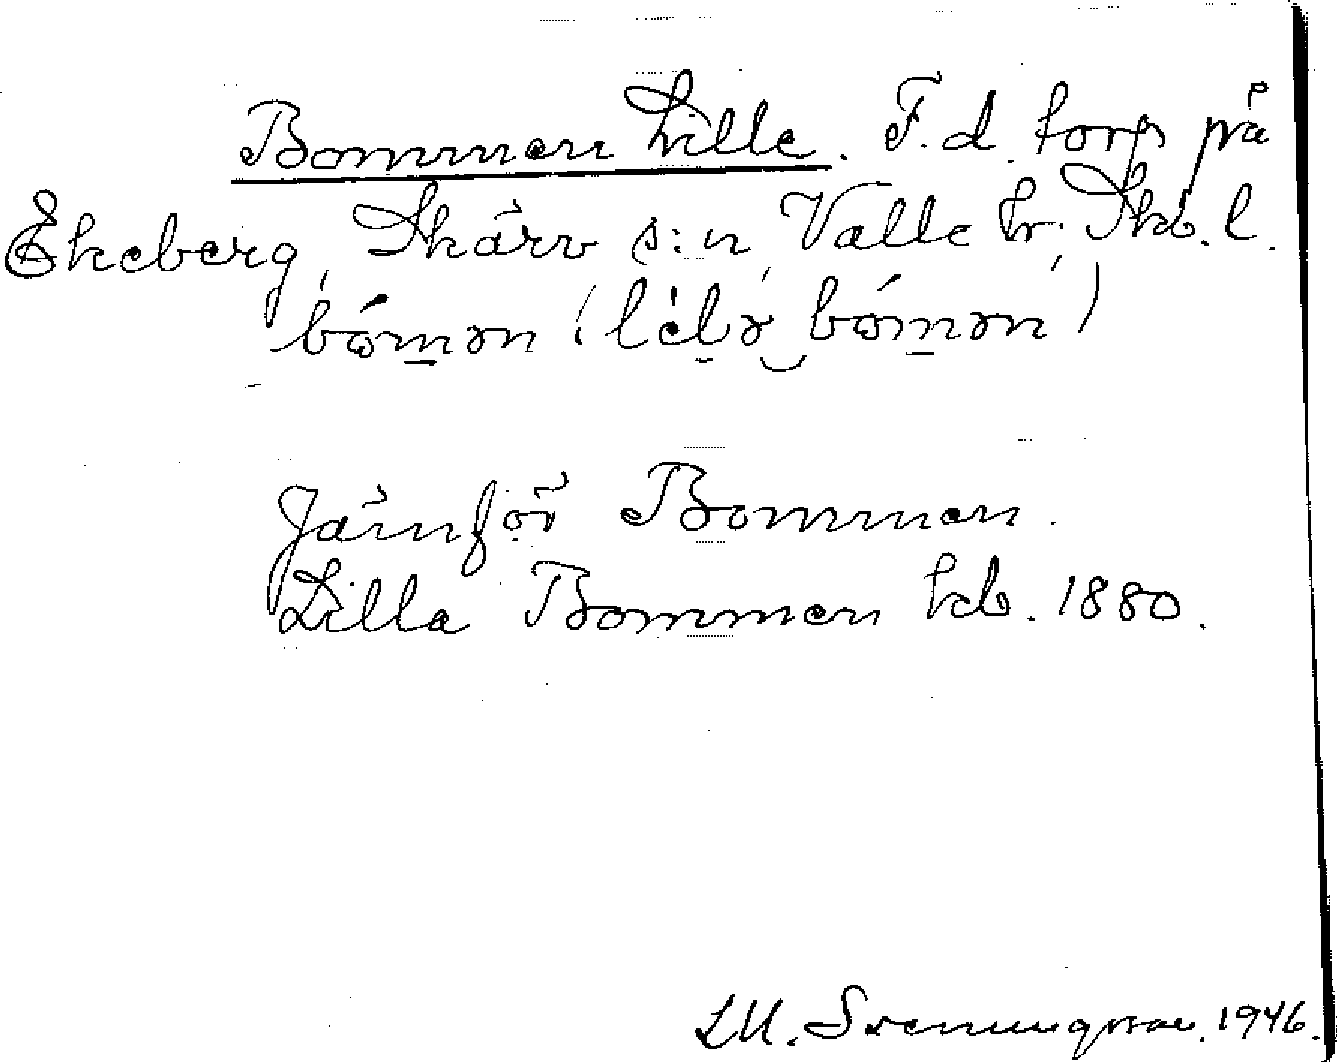 Bommen Lille. F.d. torp på
Ekeberg, Skärv s:n, Valle hr, Skb. l.
bómən (lɩ̀lə bómən)
Jämför Bommen.
Lilla Bommen kb. 1880.
LM. Svenungsson. 1946.